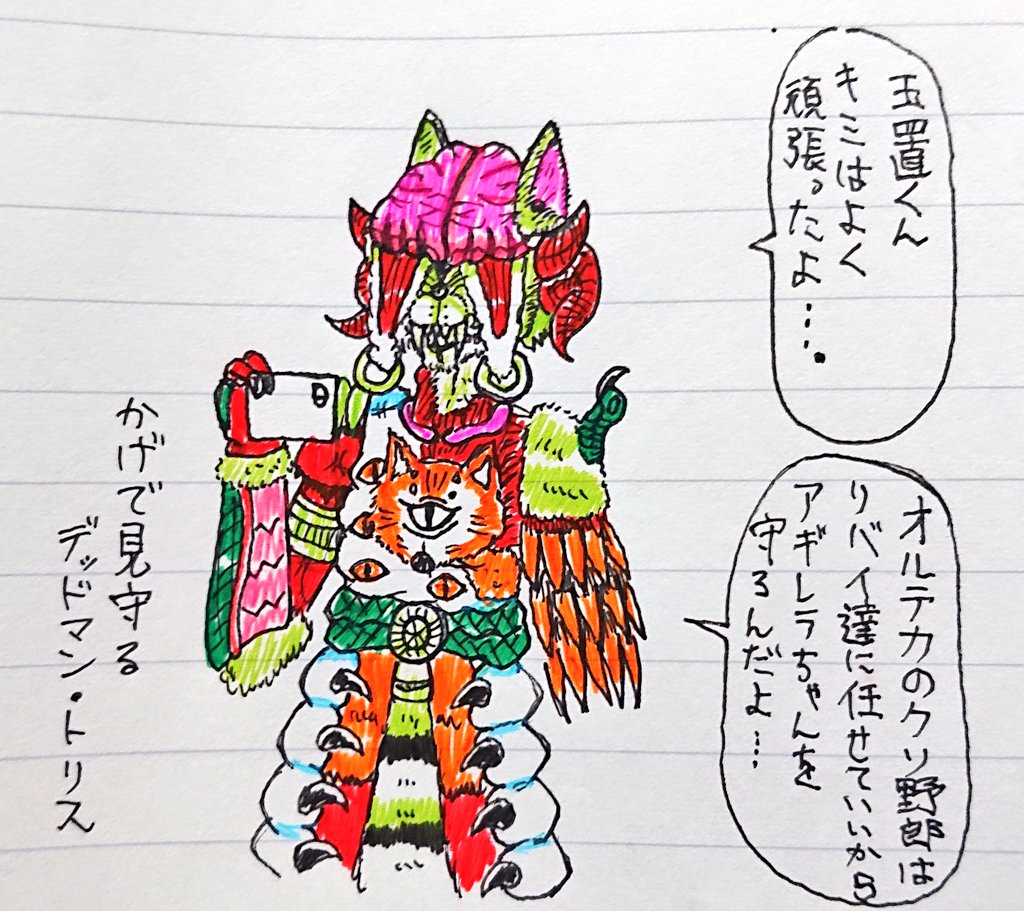 玉置くん
キミはよく
頑張ったよ….
オルテカのクソ野郎は
リバイ達に任せていいから
アギレラちゃんを
守ろんだよ…
かげで見守る
デッドマン・トリス